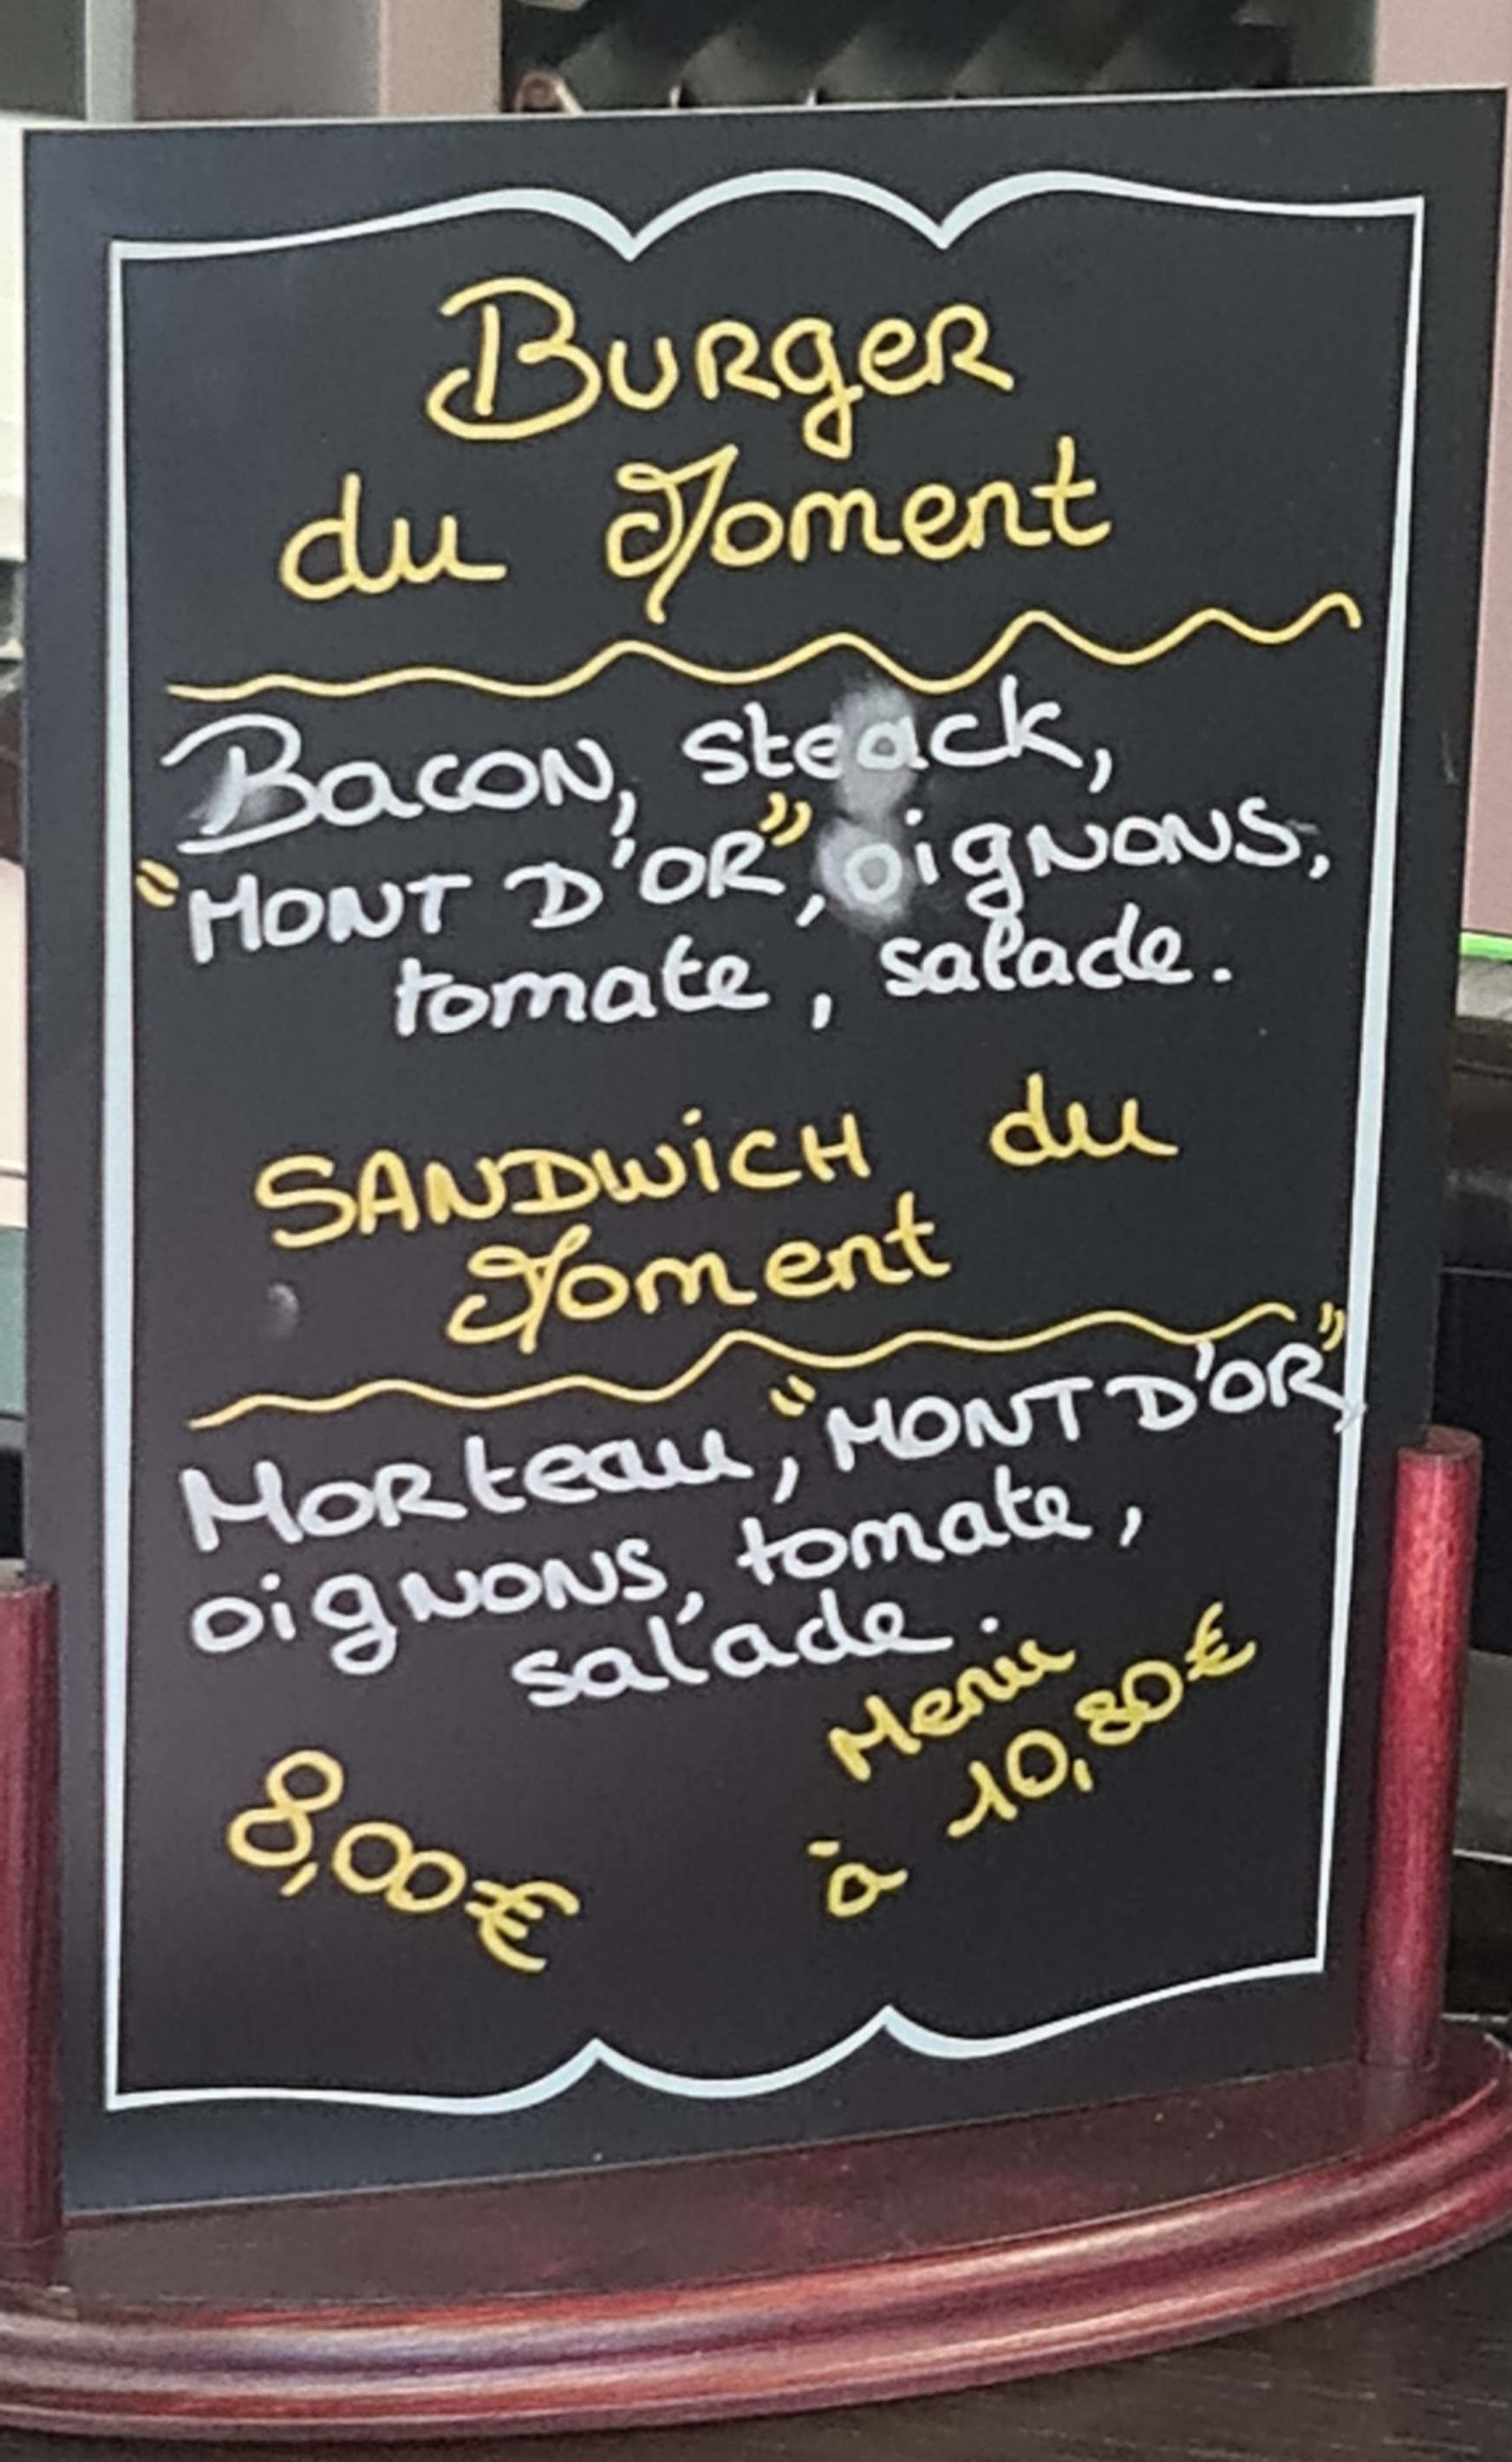 Burger
du Moment
Bacon, steack,
"MONT D'OR", oignons,
tomate, salade.
SANDWiCH du
Moment
Morteau, "MONT D'OR"
oignons, tomate,
salade.
Menu
à 10,80€
8,00€